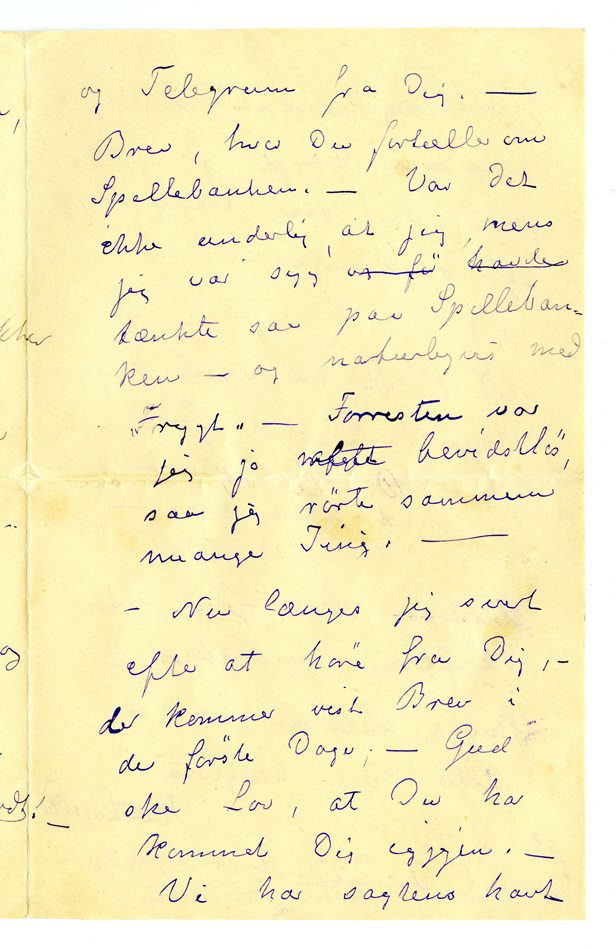 og Telegram fra Dig. —
Brev, hvor Du fortælle om
Spillebanken. — Var det
ikke underlig, at jeg, mens
jeg var syg og få havde
tænkte saa paa Spilleban=
ken — og naturligvis med
"Frygt" — Forresten var
jeg jo bevidstløs,
saa jeg rörte sammem
mange Ting. —
- Nu længes jeg svært
efte at höre fra Dig, -
der kommer vist Brev i
de förste Dage, — Gud
ske Lov, at Du har
kommet Dig igjgjen. —
Vi har sagtens havt
og